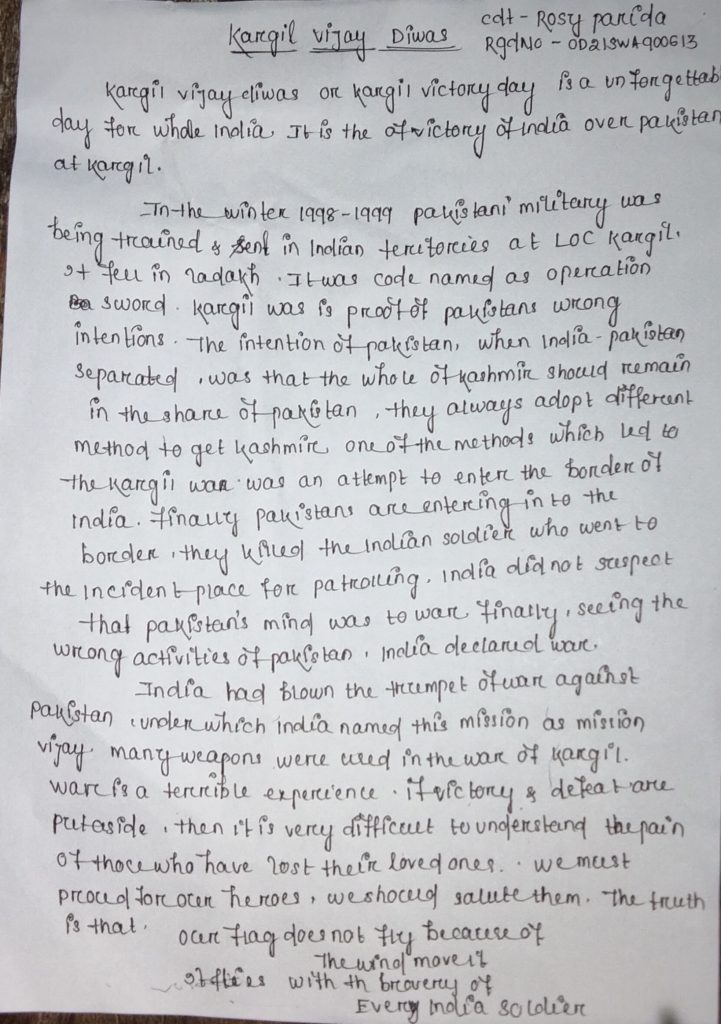 Kargil vijay Diwas
cdt - Rosy parida
RgdNo - OD21SWA900613
Kargil vijay diwas or kargil victory day is a unforgettab
day for whole India. It is the of victory of India over pakistan
at kargil.
In the winter 1998-1999 pakistani military was
being trained & sent in Indian territorcies at LOC kargil.
It fell in ladakh. It was code named as operation
sword. kargil was is proof of pakistans wrong
intentions. The intention of pakistan, when India-pakistan
separated, was that the whole of kashmir should remain
in the share of pakistan, they always adopt different
method to get kashmir one of the methods which led to
the kargil war was an attempt to enter the border of
india. Finally pakistans are entering in to the
border, they killed the Indian soldier who went to
the incident place for patrolling. India did not suspect
that pakistan's mind was to war. finally, seeing the
wrong activities of pakistan, India declared war.
India had blown the trumpet of war against
pakistan, under which india named this mission as mission
vijay. many weapons were used in the war of kargil.
war is a terrible experience. if victory & defeat are
put aside, then it is very difficult to understand the pain
of those who have lost their loved ones.. we must
proud for our heroes, we should salute them. The truth
is that.
our flag does not fly because of
The wind move it
It flies with th bravery of
Every India soldier